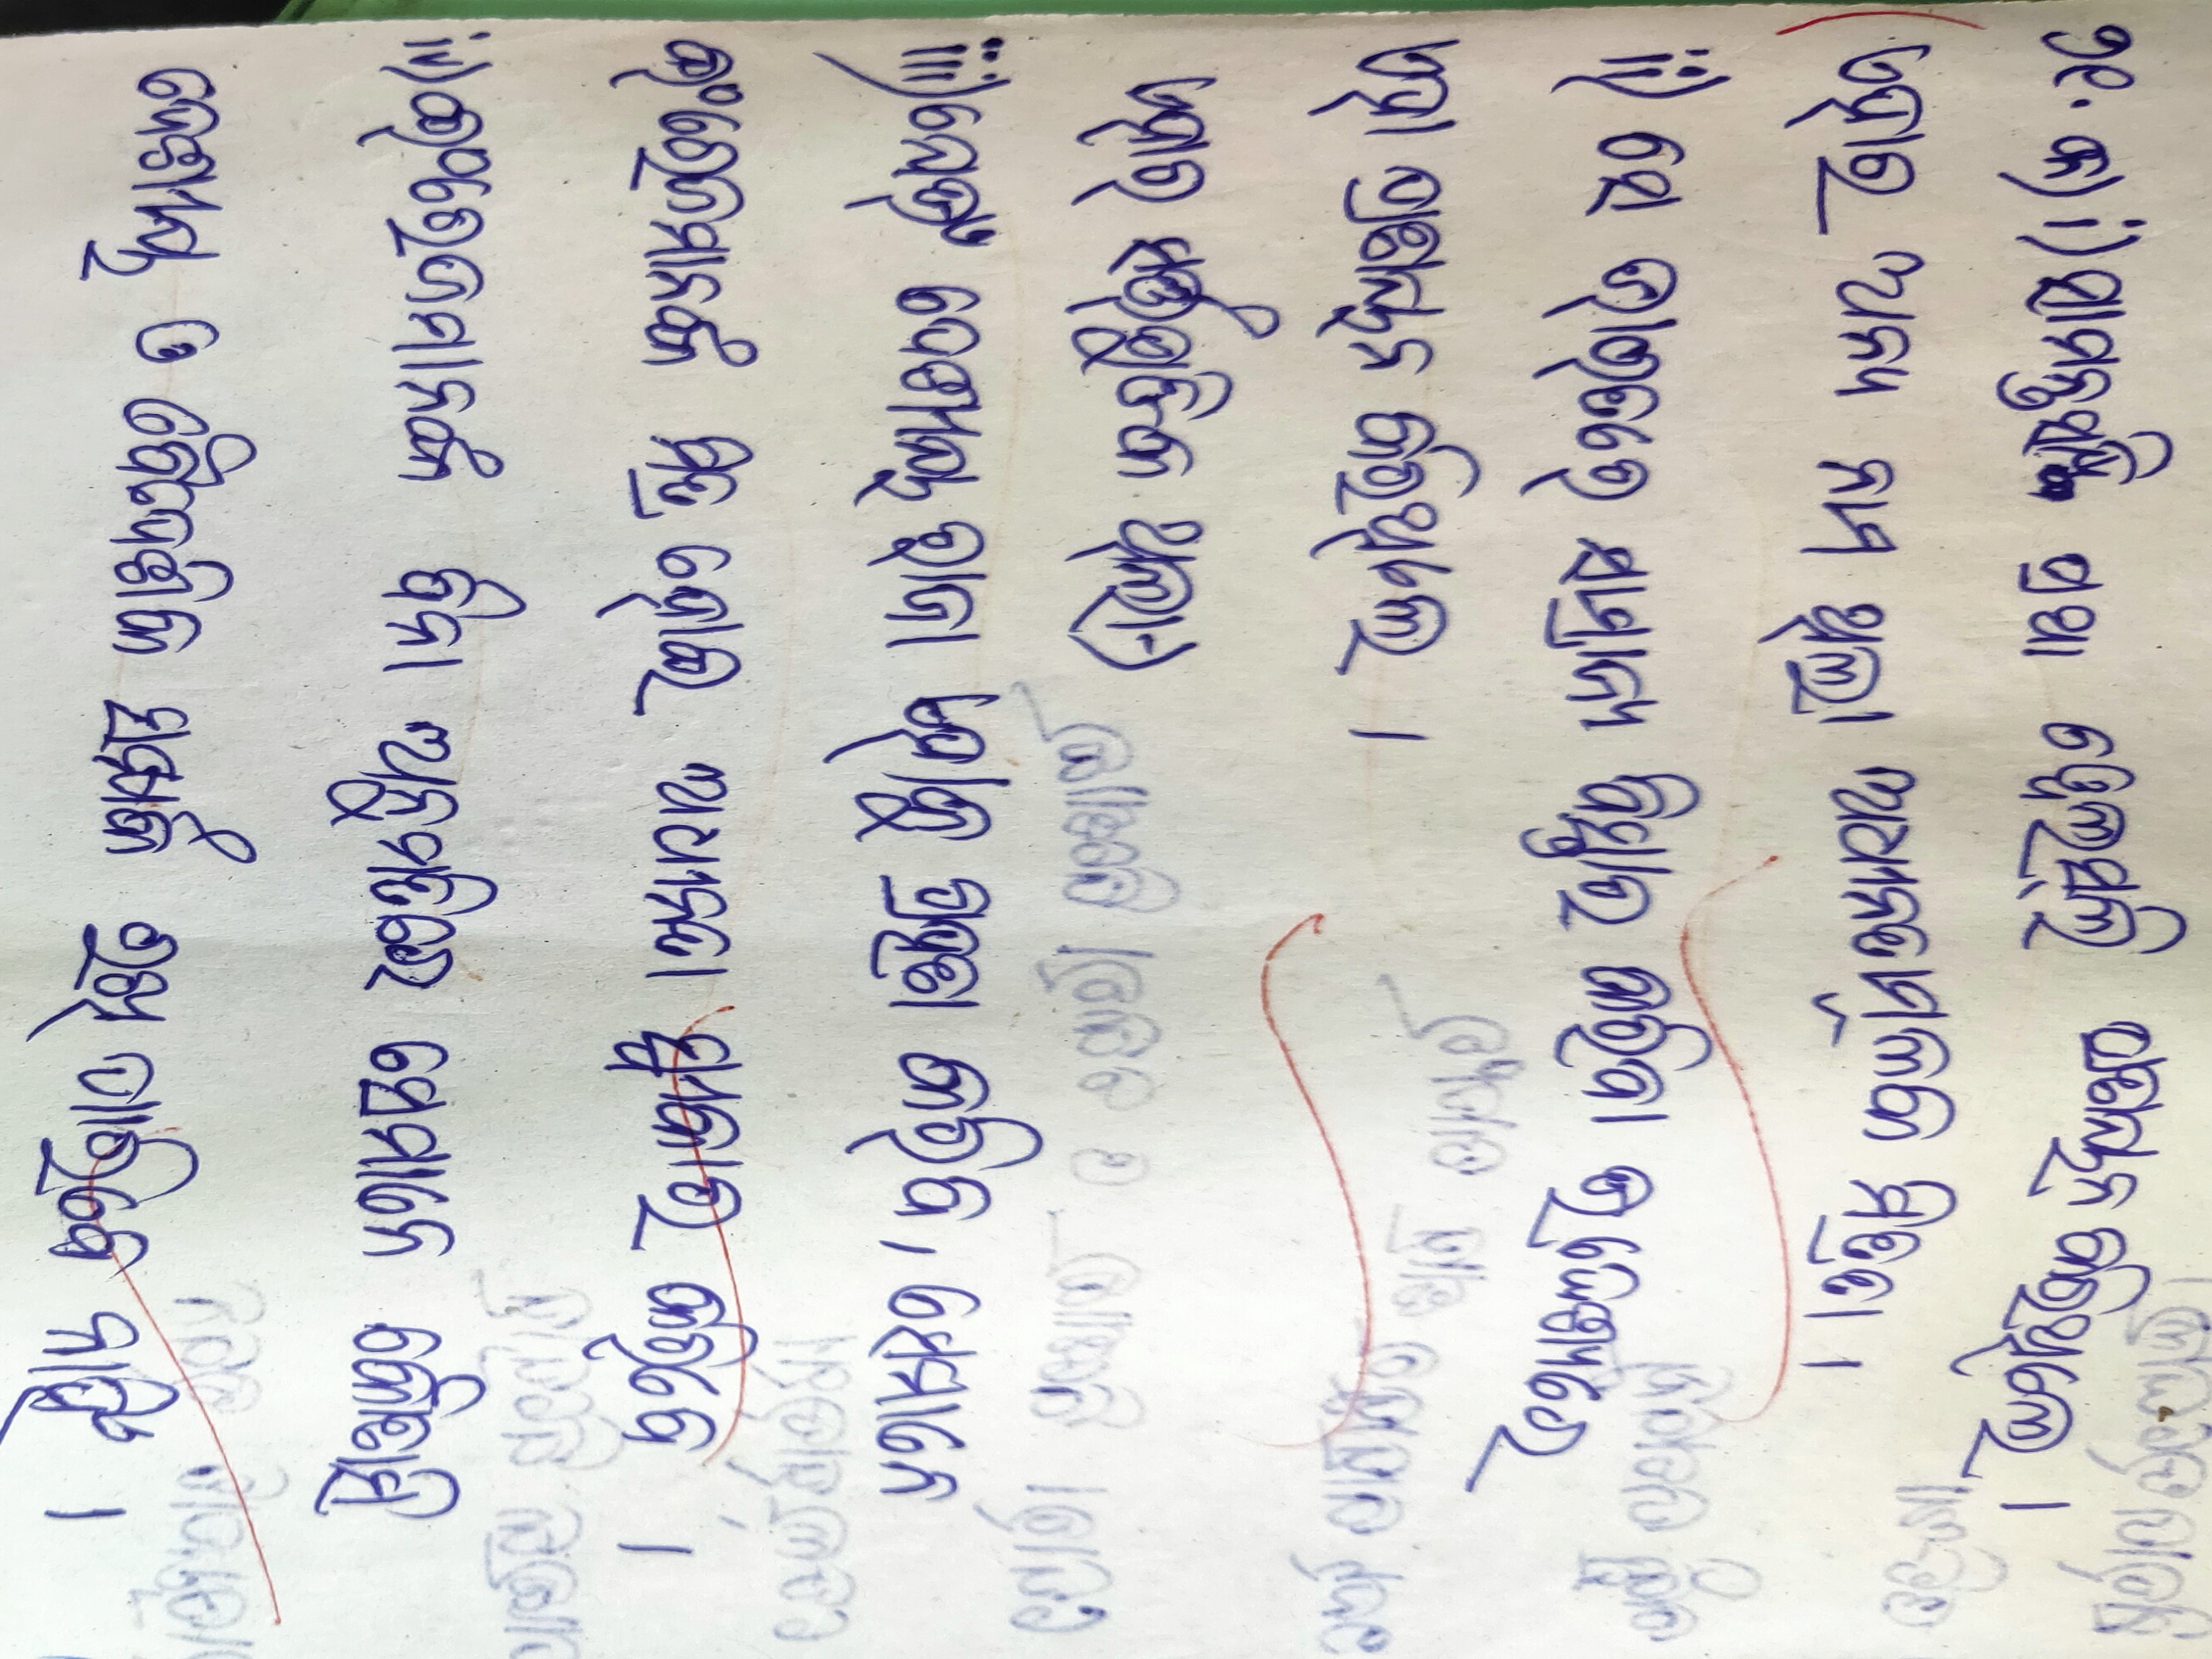 ୨୧. କ) i) ସାମନ୍ତସନ୍ଧି ପ୍ରଥା ୱେଲସ୍‌ଲି ପ୍ରଣୟନ କରିଥିଲେ ।
ଏହାର ଅନ୍ୟ ନାମ ଥିଲା ଅଧୀନତାମୂଳକ ମିତ୍ରତା ।
ii) ସେ ଭାରତରେ ସାମ୍ରାଜ୍ୟ ବିସ୍ତାର କରିବା ଉଦ୍ଦେଶ୍ୟରେ
ଏହା ପ୍ରଣୟନ କରିଥିଲେ ।
ଏହାର ସର୍ତ୍ତଗୁଡିକ ଥିଲା-)
iii) ଯେଉଁ ଦେଶୀୟ ରାଜା ଏହାକୁ ଗ୍ରହଣ କରିବ, ସେମାନେ
ଇଂରେଜମାନଙ୍କ ମିତ୍ର ହୋଇ ଅଧୀନତା ସ୍ୱୀକାର କରିବେ ।
iv) ଇଂରେଜମାନଙ୍କ ବିନା ଅନୁମତିରେ ସେମାନେ କୌଣସି
ଦେଶୀୟ ଓ ବୈଦେଶିକ ସମ୍ପର୍କ ରଖି ପାରିବେ ନାହିଁ ।